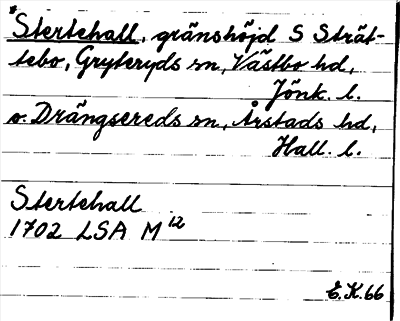 *Stertehall, gränshöjd S Strät-
tebo, Gryteryds sn, Västbo hd,
Jönk. l.
o. Drängsereds sn, Årstads hd,
Hall. l.
Stertehall
1702 LSA M 12
E.K. 66